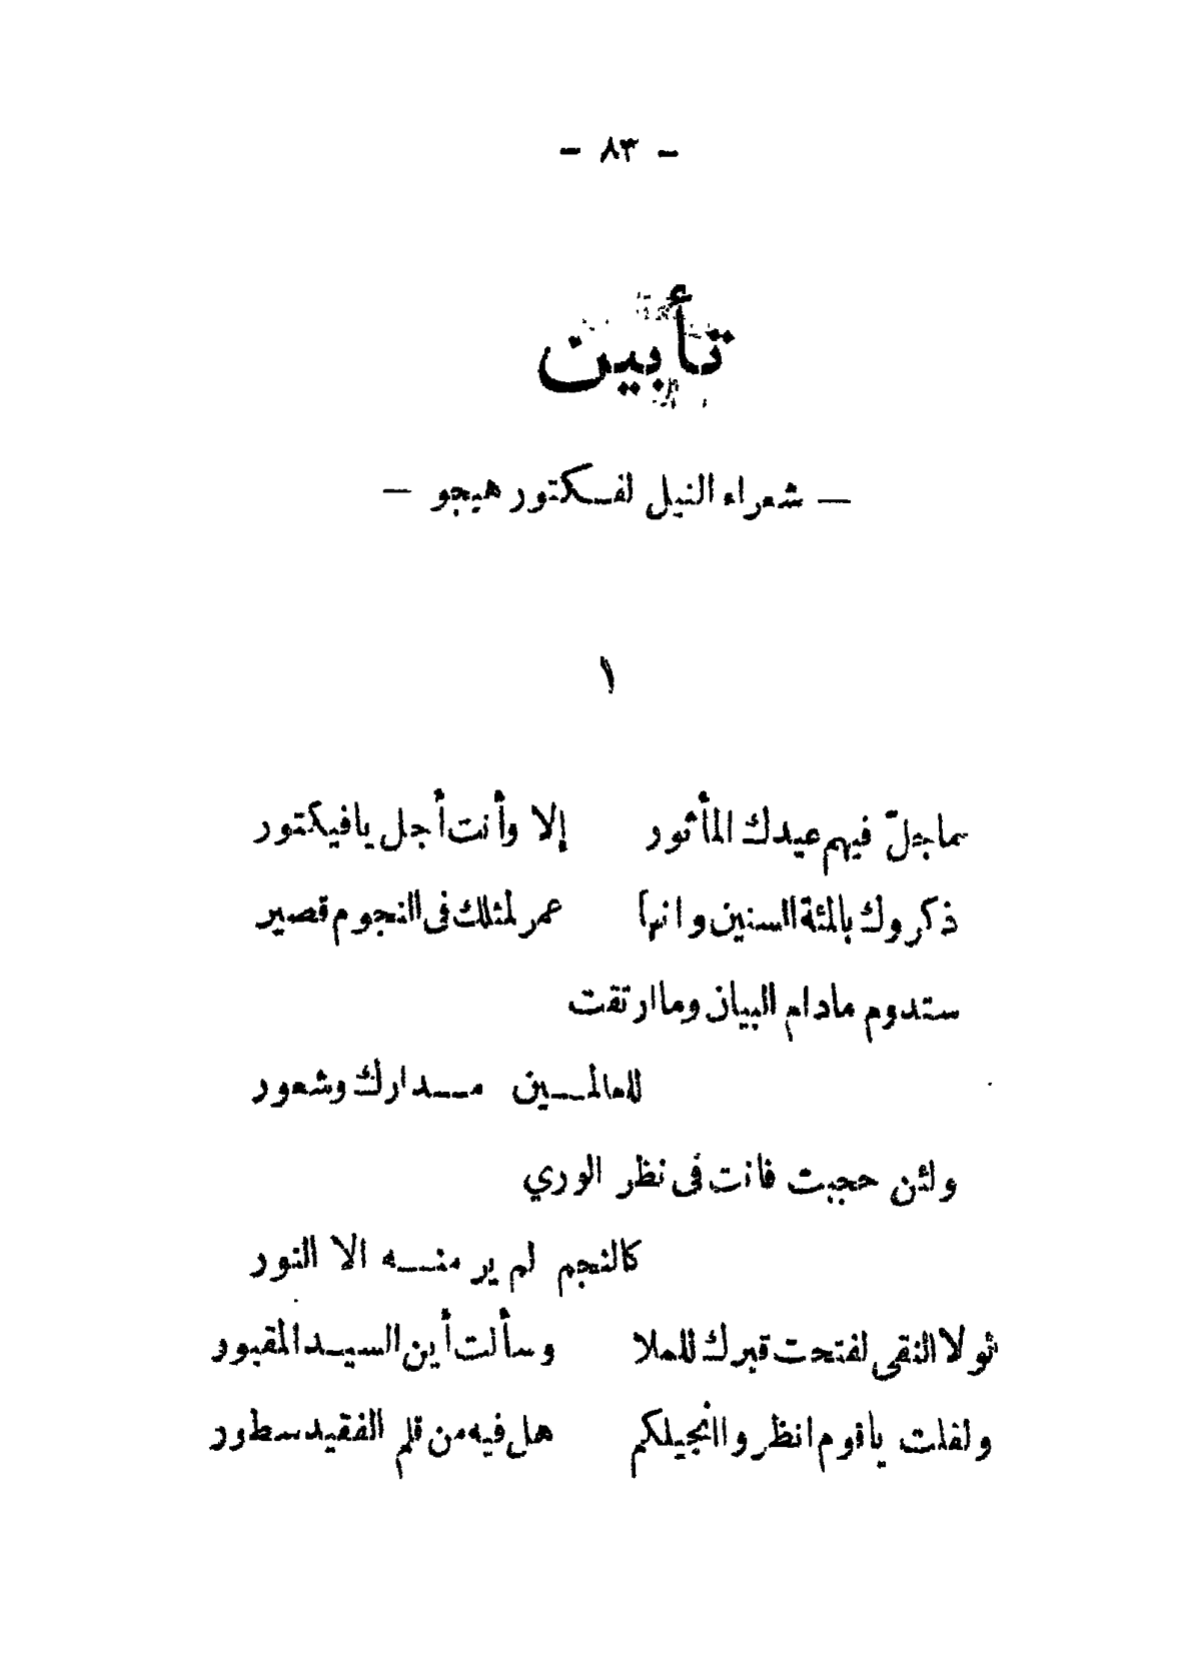 - ٨٣ -
تأبين
— شعراء النيل لفـكتور هيجو —
١
ماجلّ فيهم عيدك المأثور إلا وأنت أجل يافيكتور
ذكروك بالمئة السنين وانها عمر لمثلك فى النجوم قصير
ستدوم مادام البيان وما ارتقت
للعالمـين مـدارك وشعور
ولئن حجبت فانت فى نظر الوري
كالنجم لم ير منـه الا النور
لولا التقى لفتحت قبرك للملا وسألت أين السيـد المقبور
ولقلت ياقوم انظروا انجيلكم هل فيه من قلم الفقيد سطور